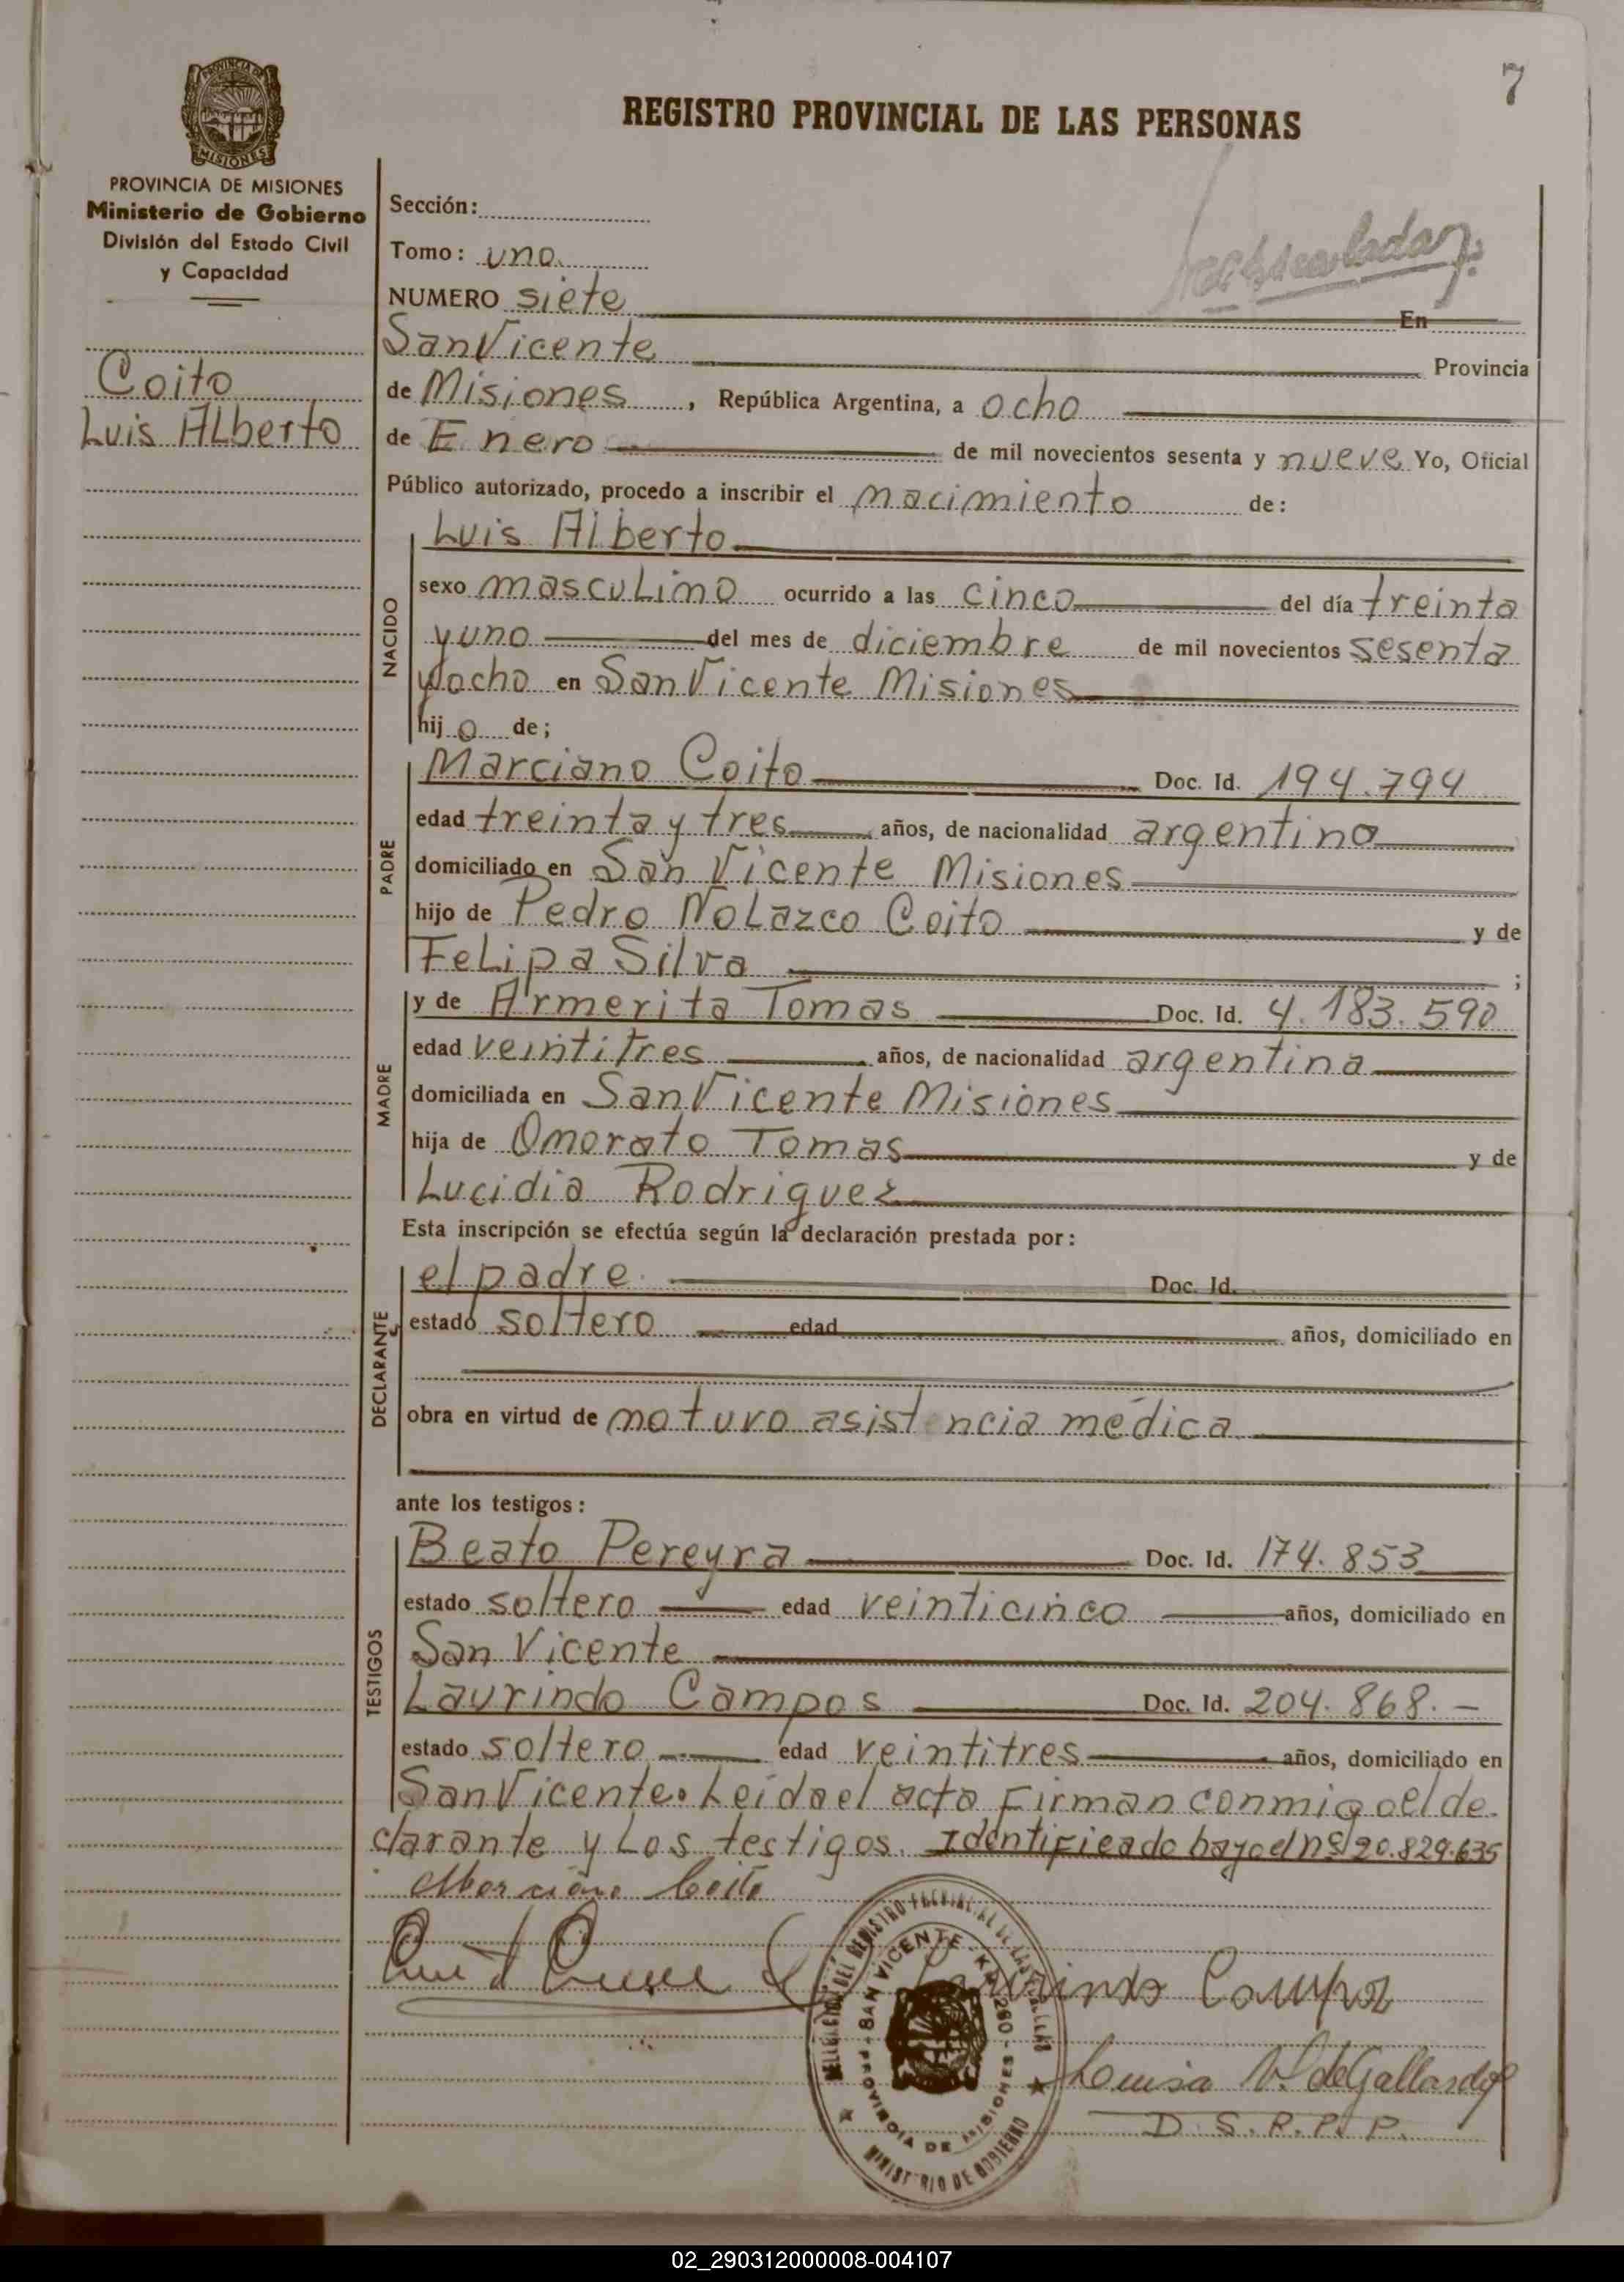 7
REGISTRO PROVINCIAL DE LAS PERSONAS
PROVINCIA DE MISIONES
MISIONES
PROVINCIA DE MISIONES
Ministerio de Gobierno
División del Estado Civil
y Capacidad
Coito
Luis Alberto
Sección:
Tomo: uno
NUMERO siete En
San Vicente Provincia
de Misiones, República Argentina, a ocho
de Enero de mil novecientos sesenta y nueve Yo, Oficial
Público autorizado, procedo a inscribir el nacimiento de:
NACIDO
Luis Alberto
sexo masculino ocurrido a las cinco del día treinta
y uno del mes de diciembre de mil novecientos sesenta
y ocho en San Vicente Misiones
hijo de;
PADRE
Marciano Coito Doc. Id. 194.794
edad treinta y tres años, de nacionalidad argentino
domiciliado en San Vicente Misiones
hijo de Pedro Nolazco Coito y de
Felipa Silva ;
MADRE
y de Armerita Tomas Doc. Id. 4.183.590
edad veintitres años, de nacionalidad argentina
domiciliada en San Vicente Misiones
hija de Onorato Tomas y de
Lucidia Rodriguez
Esta inscripción se efectúa según la declaración prestada por:
DECLARANTE
el padre Doc. Id.
estado soltero edad años, domiciliado en
obra en virtud de no tuvo asistencia médica
ante los testigos:
TESTIGOS
Beato Pereyra Doc. Id. 174.853
estado soltero edad veinticinco años, domiciliado en
San Vicente
Laurindo Campos Doc. Id. 204.868.-
estado soltero edad veintitres años, domiciliado en
San Vicente. Leida el acta Firman conmigo el de
clarante y Los testigos. Identificado bajo el nº 20.829.635
Marciano Coito
Laurindo Campos
SAN VICENTE
PROVINCIA DE MISIONES
MINISTERIO DE GOBIERNO
Luisa V. de Gallardo
D.S.R.P.P.
02_290312000008-004107